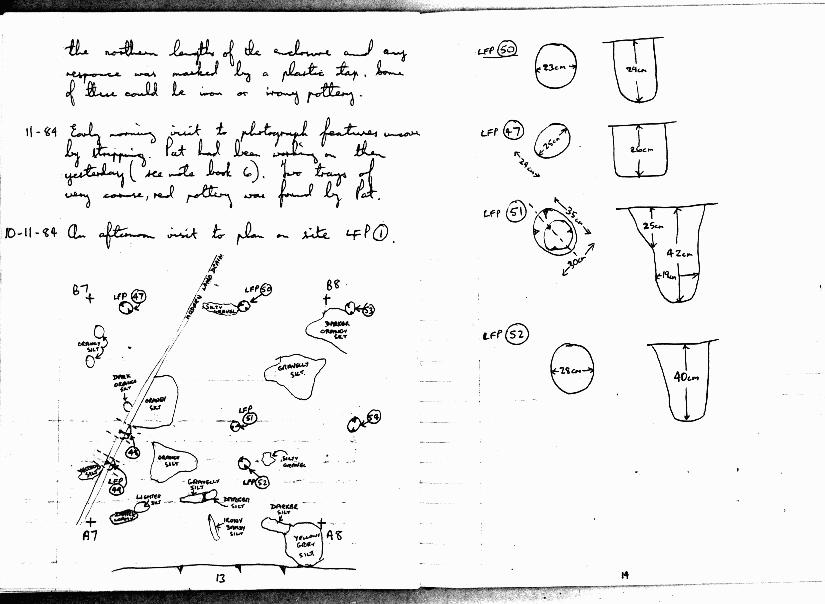 the northern lengths of the enclosure and any
response was marked by a plastic tag. Some
of these could be iron or irony pottery.
11-84 Early morning visit to photograph features uncove
by stripping. Pat had been working on them
yesterday (see note book 6). Two trays of
very coarse, red pottery was found by Pat.
10-11-84 An afternoon visit to plan on site LFP ①.
B7
LFP 47
MODERN LAND DRAIN
LFP 50
SILTY GRAVEL
B8
53
DARKER
ORANGY
SILT
ORANGY
SILT
GRAVELLY
SILT
DARK
ORANGE
SILT
ORANGY
SILT
LFP
51
54
ORANGY
SILT
SILTY
GRAVEL
LFP
LFP 52
LIGHTER
SILT
GRAVELLY
SILT
DARKER
SILT
DARKER
SILT
IRONY
SANDY
SILT
YELLOW
GREY
SILT
A7
A8
13
LFP 50
23cm
29cm
LFP 47
25cm
29cm
LFP 51
35cm
30cm
25cm
42cm
19cm
LFP 52
28cm
40cm
14